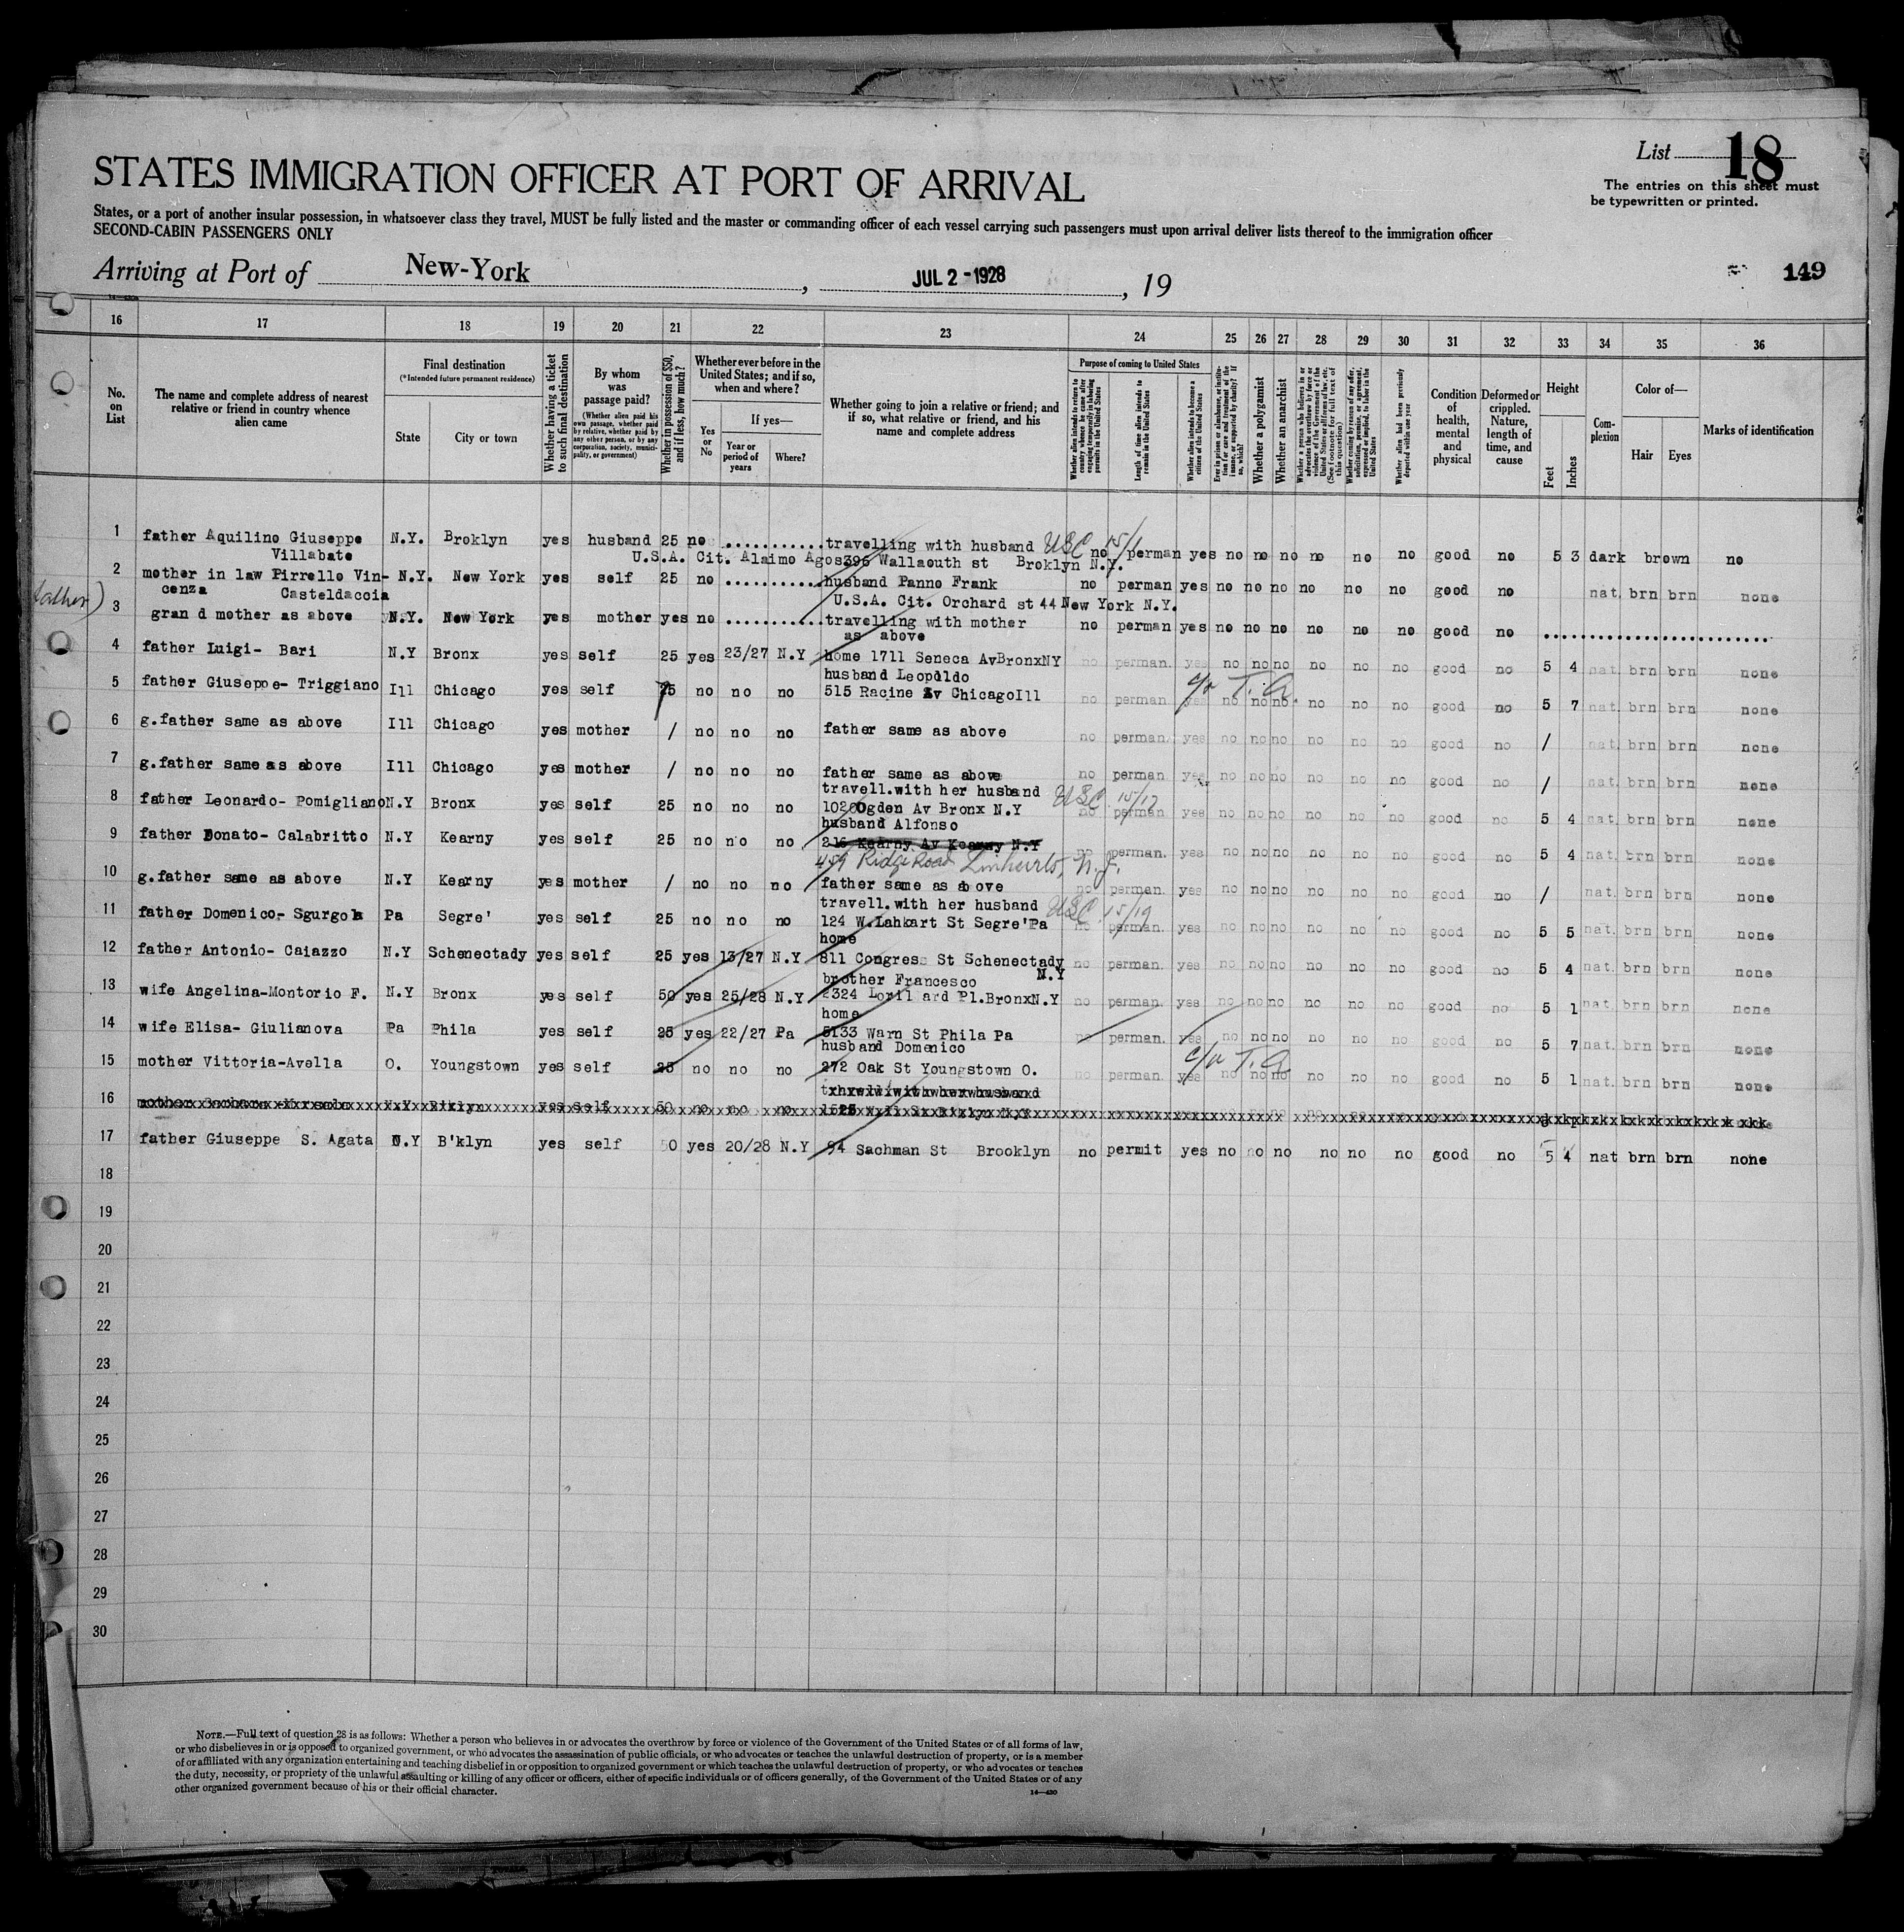 List 18
The entries on this sheet must
be typewritten or printed.
STATES IMMIGRATION OFFICER AT PORT OF ARRIVAL
States, or a port of another insular possession, in whatsoever class they travel, MUST be fully listed and the master or commanding officer of each vessel carrying such passengers must upon arrival deliver lists thereof to the immigration officer
SECOND-CABIN PASSENGERS ONLY
Arriving at Port of New-York, JUL 2-1928, 19
149
16 17 18 19 20 21 22 23 24 25 26 27 28 29 30 31 32 33 34 35 36
No. on List
The name and complete address of nearest relative or friend in country whence alien came
Final destination
(*Intended future permanent residence)
State
City or town
Whether having a ticket to such final destination
By whom was passage paid?
(Whether alien paid his own passage, whether paid by relative, whether paid by any other person, or by any corporation, society, municipality, or government)
Whether in possession of $50, and if less, how much?
Whether ever before in the United States; and if so, when and where?
Yes or No
If yes—
Year or period of years
Where?
Whether going to join a relative or friend; and if so, what relative or friend, and his name and complete address
Purpose of coming to United States
Whether alien intends to return to country whence he came after engaging temporarily in laboring pursuits in the United States
Length of time alien intends to remain in the United States
Whether alien intends to become a citizen of the United States
Ever in prison or almshouse, or institution for care and treatment of the insane, or supported by charity? If so, which?
Whether a polygamist
Whether an anarchist
Whether a person who believes in or advocates the overthrow by force or violence of the Government of the United States or all forms of law, etc. (See footnote for full text of this question)
Whether coming by reason of any offer, solicitation, promise, or agreement, expressed or implied, to labor in the United States
Whether alien had been previously deported within one year
Condition of health, mental and physical
Deformed or crippled. Nature, length of time, and cause
Height
Feet
Inches
Complexion
Color of—
Hair
Eyes
Marks of identification
1 father Aquilino Giuseppe N.Y. Broklyn yes husband 25 no travelling with husband USC 15/1 no perman yes no no no no no no good no 5 3 dark brown no
Villabate U.S.A. Cit. Alaimo Agos 396 Wallaouth st Broklyn N.Y.
2 mother in law Pirrello Vin- N.Y. New York yes self 25 no husband Panno Frank no perman yes no no no no no no good no nat. brn brn none
cenza Casteldaccia U.S.A. Cit. Orchard st 44 New York N.Y.
(father)
3 grand mother as above N.Y. New York yes mother yes no travelling with mother no perman yes no no no no no no good no
as above
4 father Luigi- Bari N.Y Bronx yes self 25 yes 23/27 N.Y home 1711 Seneca AvBronxNY no perman. yes no no no no no no good no 5 4 nat. brn brn none
husband Leopoldo
5 father Giuseppe- Triggiano Ill Chicago yes self 25 no no no 515 Racine Av ChicagoIll c/o T.A. no perman yes no no no no no no good no 5 7 nat. brn brn none
6 g.father same as above Ill Chicago yes mother / no no no father same as above no perman. yes no no no no no no good no / nat. brn brn none
7 g.father same as above Ill Chicago yes mother / no no no father same as above no perman yes no no no no no no good no / nat. brn brn none
travell.with her husband USC 15/17
8 father Leonardo- Pomigliano N.Y Bronx yes self 25 no no no 1020 Ogden Av Bronx N.Y no perman yes no no no no no no good no 5 4 nat. brn brn none
husband Alfonso
9 father Donato- Calabritto N.Y Kearny yes self 25 no no no 216 Kearny Av Kearny N.Y no perman. yes no no no no no no good no 5 4 nat. brn brn none
459 Ridge Road Linhurts, N.J.
10 g.father same as above N.Y Kearny yes mother / no no no father same as above no perman yes no no no no no no good no / nat. brn brn none
travell.with her husband USC 15/19
11 father Domenico- Sgurgola Pa Segre' yes self 25 no no no 124 W.Lahkart St Segre'Pa no perman. yes no no no no no no good no 5 5 nat. brn brn none
home
12 father Antonio- Caiazzo N.Y Schenectady yes self 25 yes 13/27 N.Y 811 Congress St Schenectady no perman. yes no no no no no no good no 5 4 nat. brn brn none
brother Francesco N.Y
13 wife Angelina-Montorio F. N.Y Bronx yes self 50 yes 25/28 N.Y 2324 Loril ard Pl.BronxN.Y no perman. yes no no no no no no good no 5 1 nat. brn brn none
home
14 wife Elisa- Giulianova Pa Phila yes self 25 yes 22/27 Pa 5133 Warn St Phila Pa no perman. yes no no no no no no good no 5 7 nat. brn brn none
husband Domenico
15 mother Vittoria-Avella O. Youngstown yes self 25 no no no 272 Oak St Youngstown O. c/o T.A. no perman. yes no no no no no no good no 5 1 nat. brn brn none
16 mother N.Y B'klyn yes self 50 no no no
17 father Giuseppe S. Agata N.Y B'klyn yes self 50 yes 20/28 N.Y 94 Sachman St Brooklyn no permit yes no no no no no no good no 5 4 nat brn brn none
18
19
20
21
22
23
24
25
26
27
28
29
30
NOTE.—Full text of question 28 is as follows: Whether a person who believes in or advocates the overthrow by force or violence of the Government of the United States or of all forms of law,
or who disbelieves in or is opposed to organized government, or who advocates the assassination of public officials, or who advocates or teaches the unlawful destruction of property, or is a member
of or affiliated with any organization entertaining and teaching disbelief in or opposition to organized government or which teaches the unlawful destruction of property, or who advocates or teaches
the duty, necessity, or propriety of the unlawful assaulting or killing of any officer or officers, either of specific individuals or of officers generally, of the Government of the United States or of any
other organized government because of his or their official character.
14—430